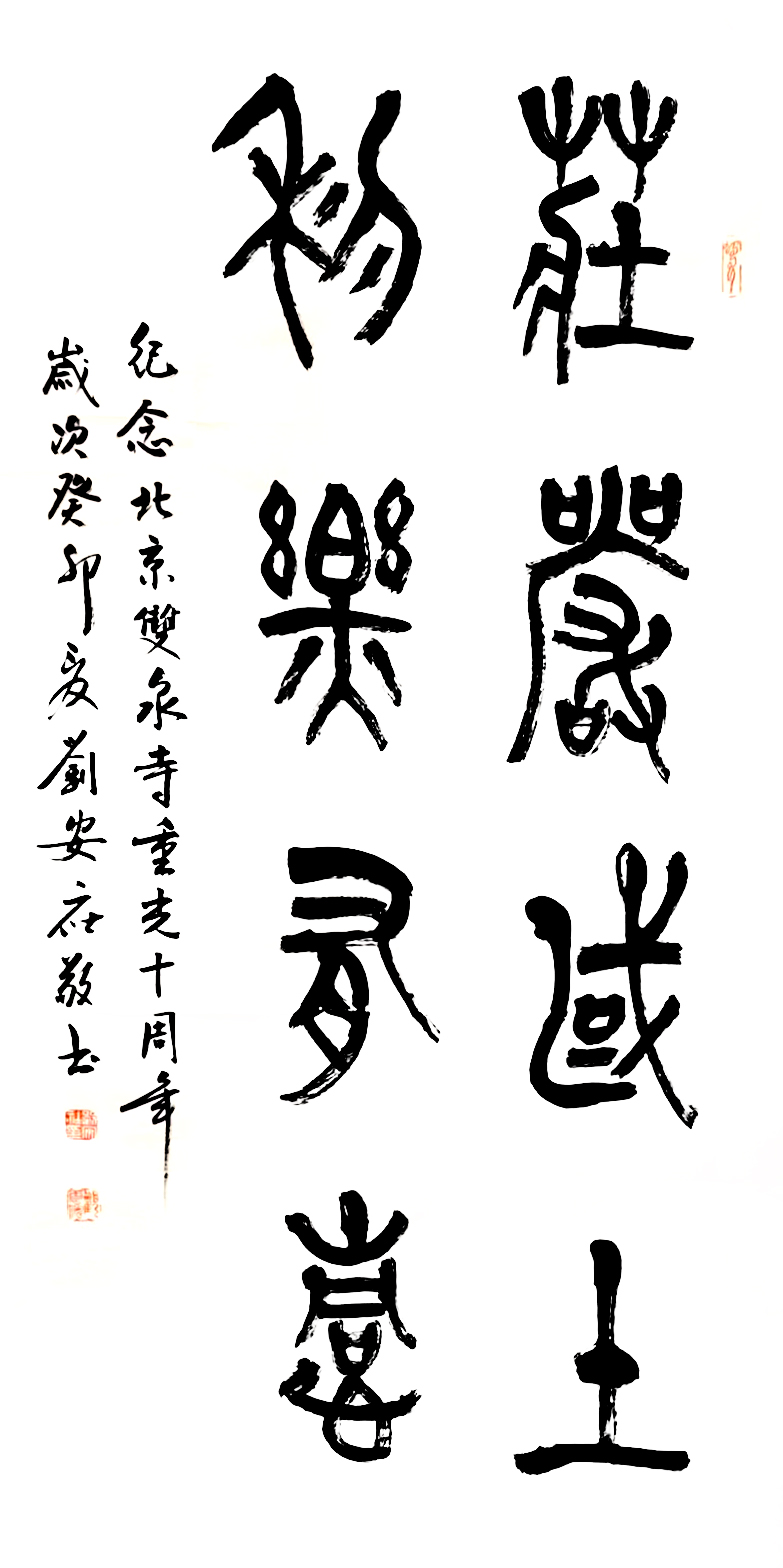 莊嚴國土
利樂有情
紀念北京雙泉寺重光十周年
歲次癸卯夏劉安敬书